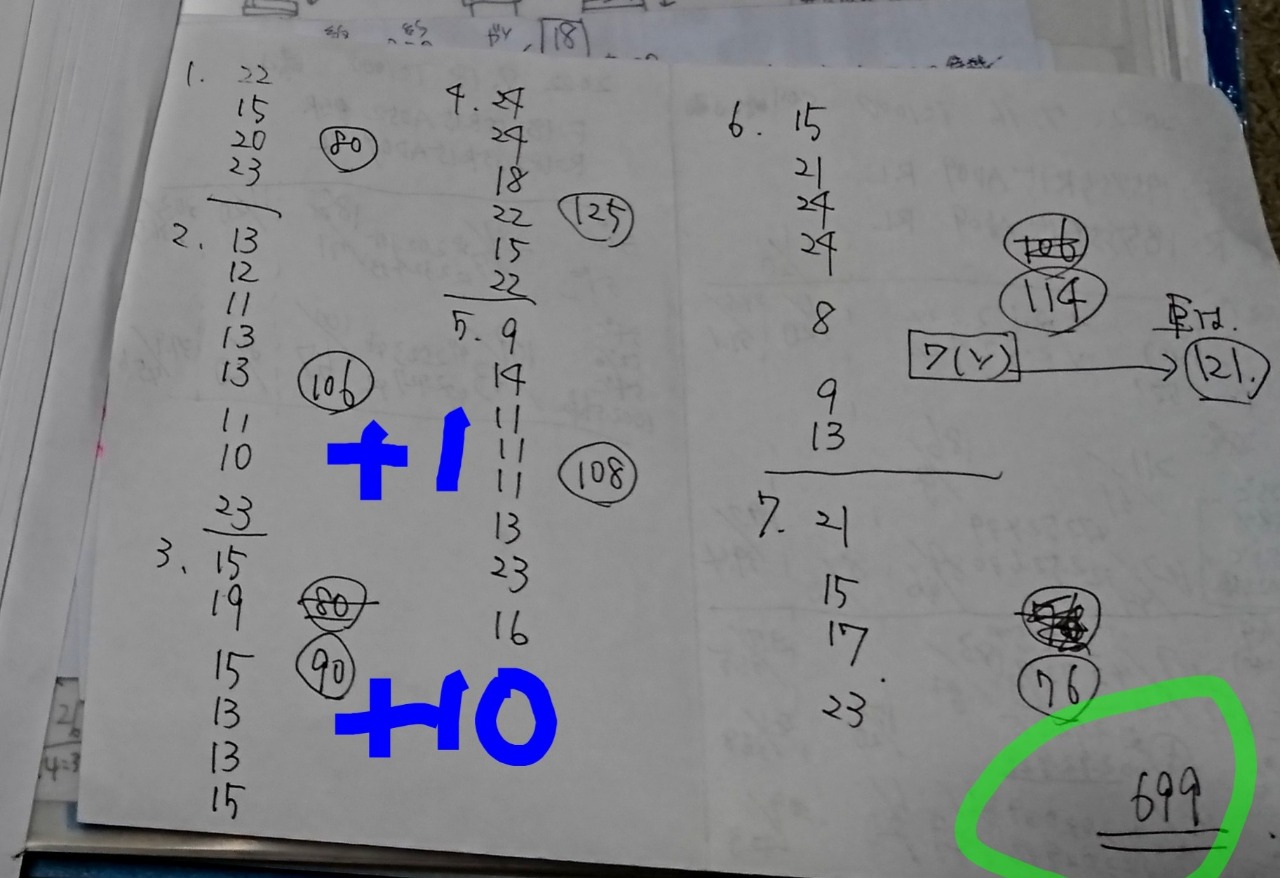 18
1. 22
15
20
23
80
2. 13
12
11
13
13
11
10
23
106
+1
3. 15
19
15
13
13
15
80
90
+10
4. 24
24
18
22
15
22
125
5. 9
14
11
11
11
13
23
16
108
6. 15
21
24
24
8
9
13
106
114
7(Y)
車は.
121.
7. 21
15
17
23
76
699